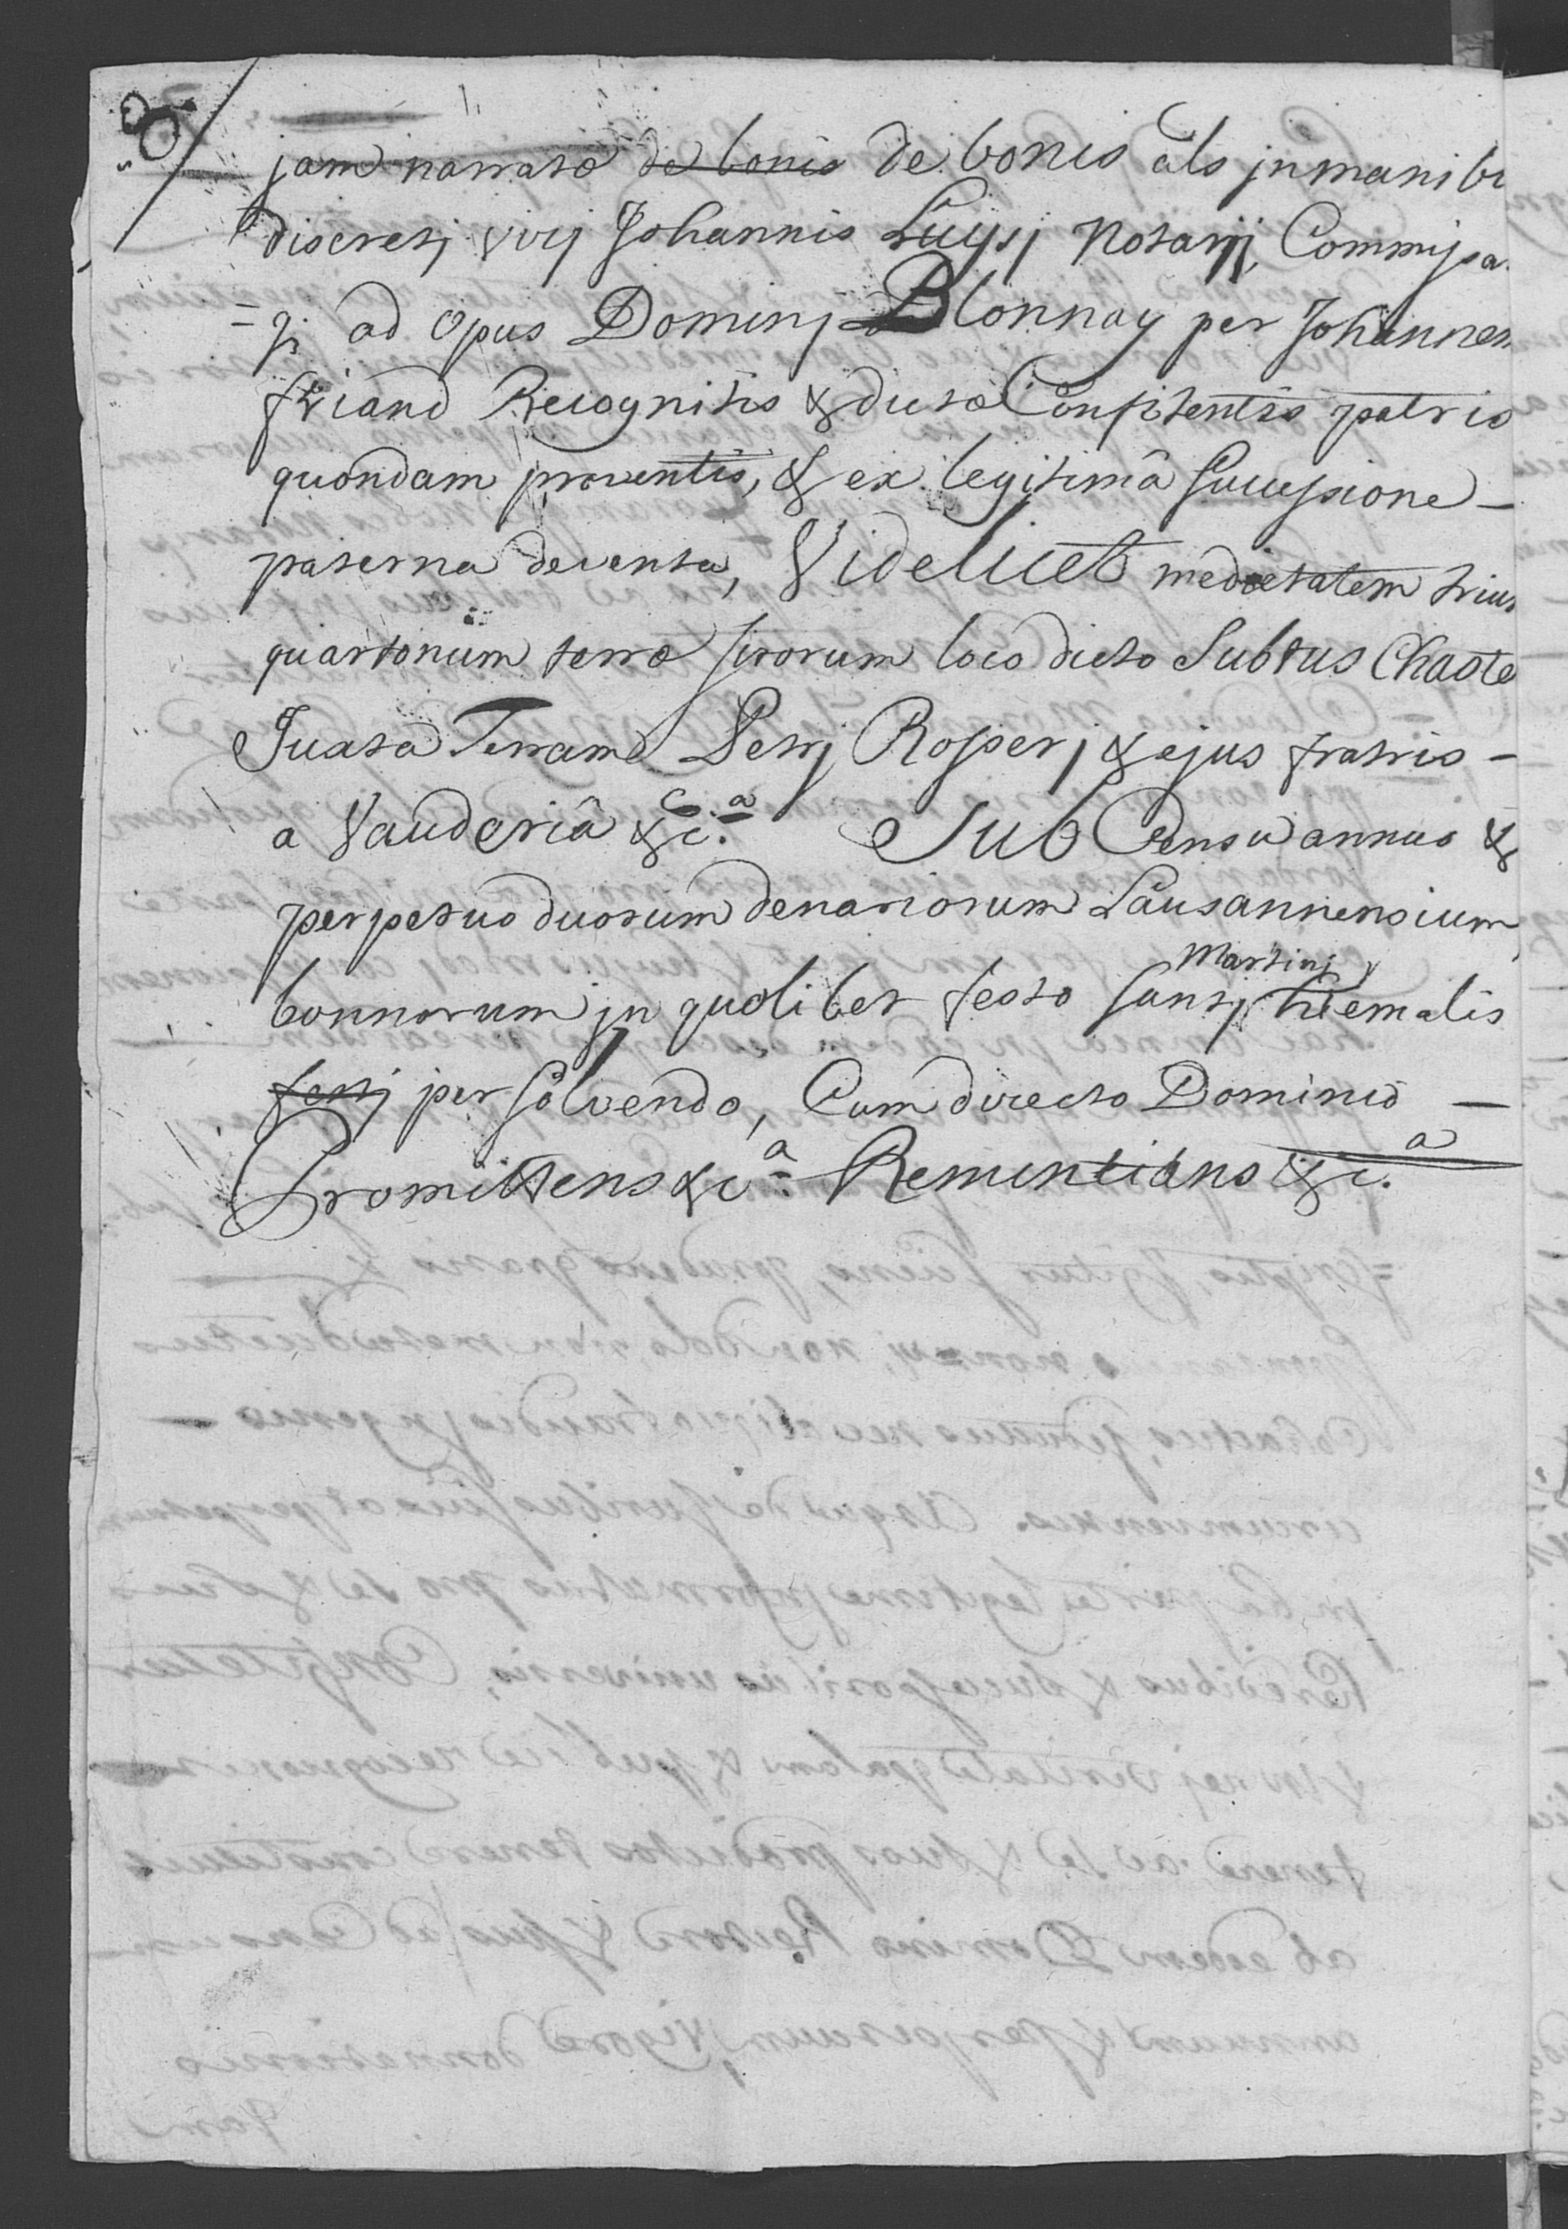 jam narrato de bonis de bonis als jn manibu
discretj virj Johannis Luysj Notarij, Commissa
=rj ad opus Dominj Blonnay per Johannem
friand Recognitis & dicto Confitentis patris
quondam proventis, & ex legitimâ Successione –
paterna deventa, Videlicet medietatem trium
quartonum terre sitorum loco dicto Subtus Chaste
Juxta Terram Petrj Rosserj & ejus fratris –
a Vauderiâ &c.ª Sub Censu annuo &
perpetuo duorum denariorum Lausannensium,
Martinj
bonnorum jn quolibet festo Sanctj hiemalis
festj persolvendo, Cum directo Dominio –
Promittens &c.ª Renuntians &c.ª